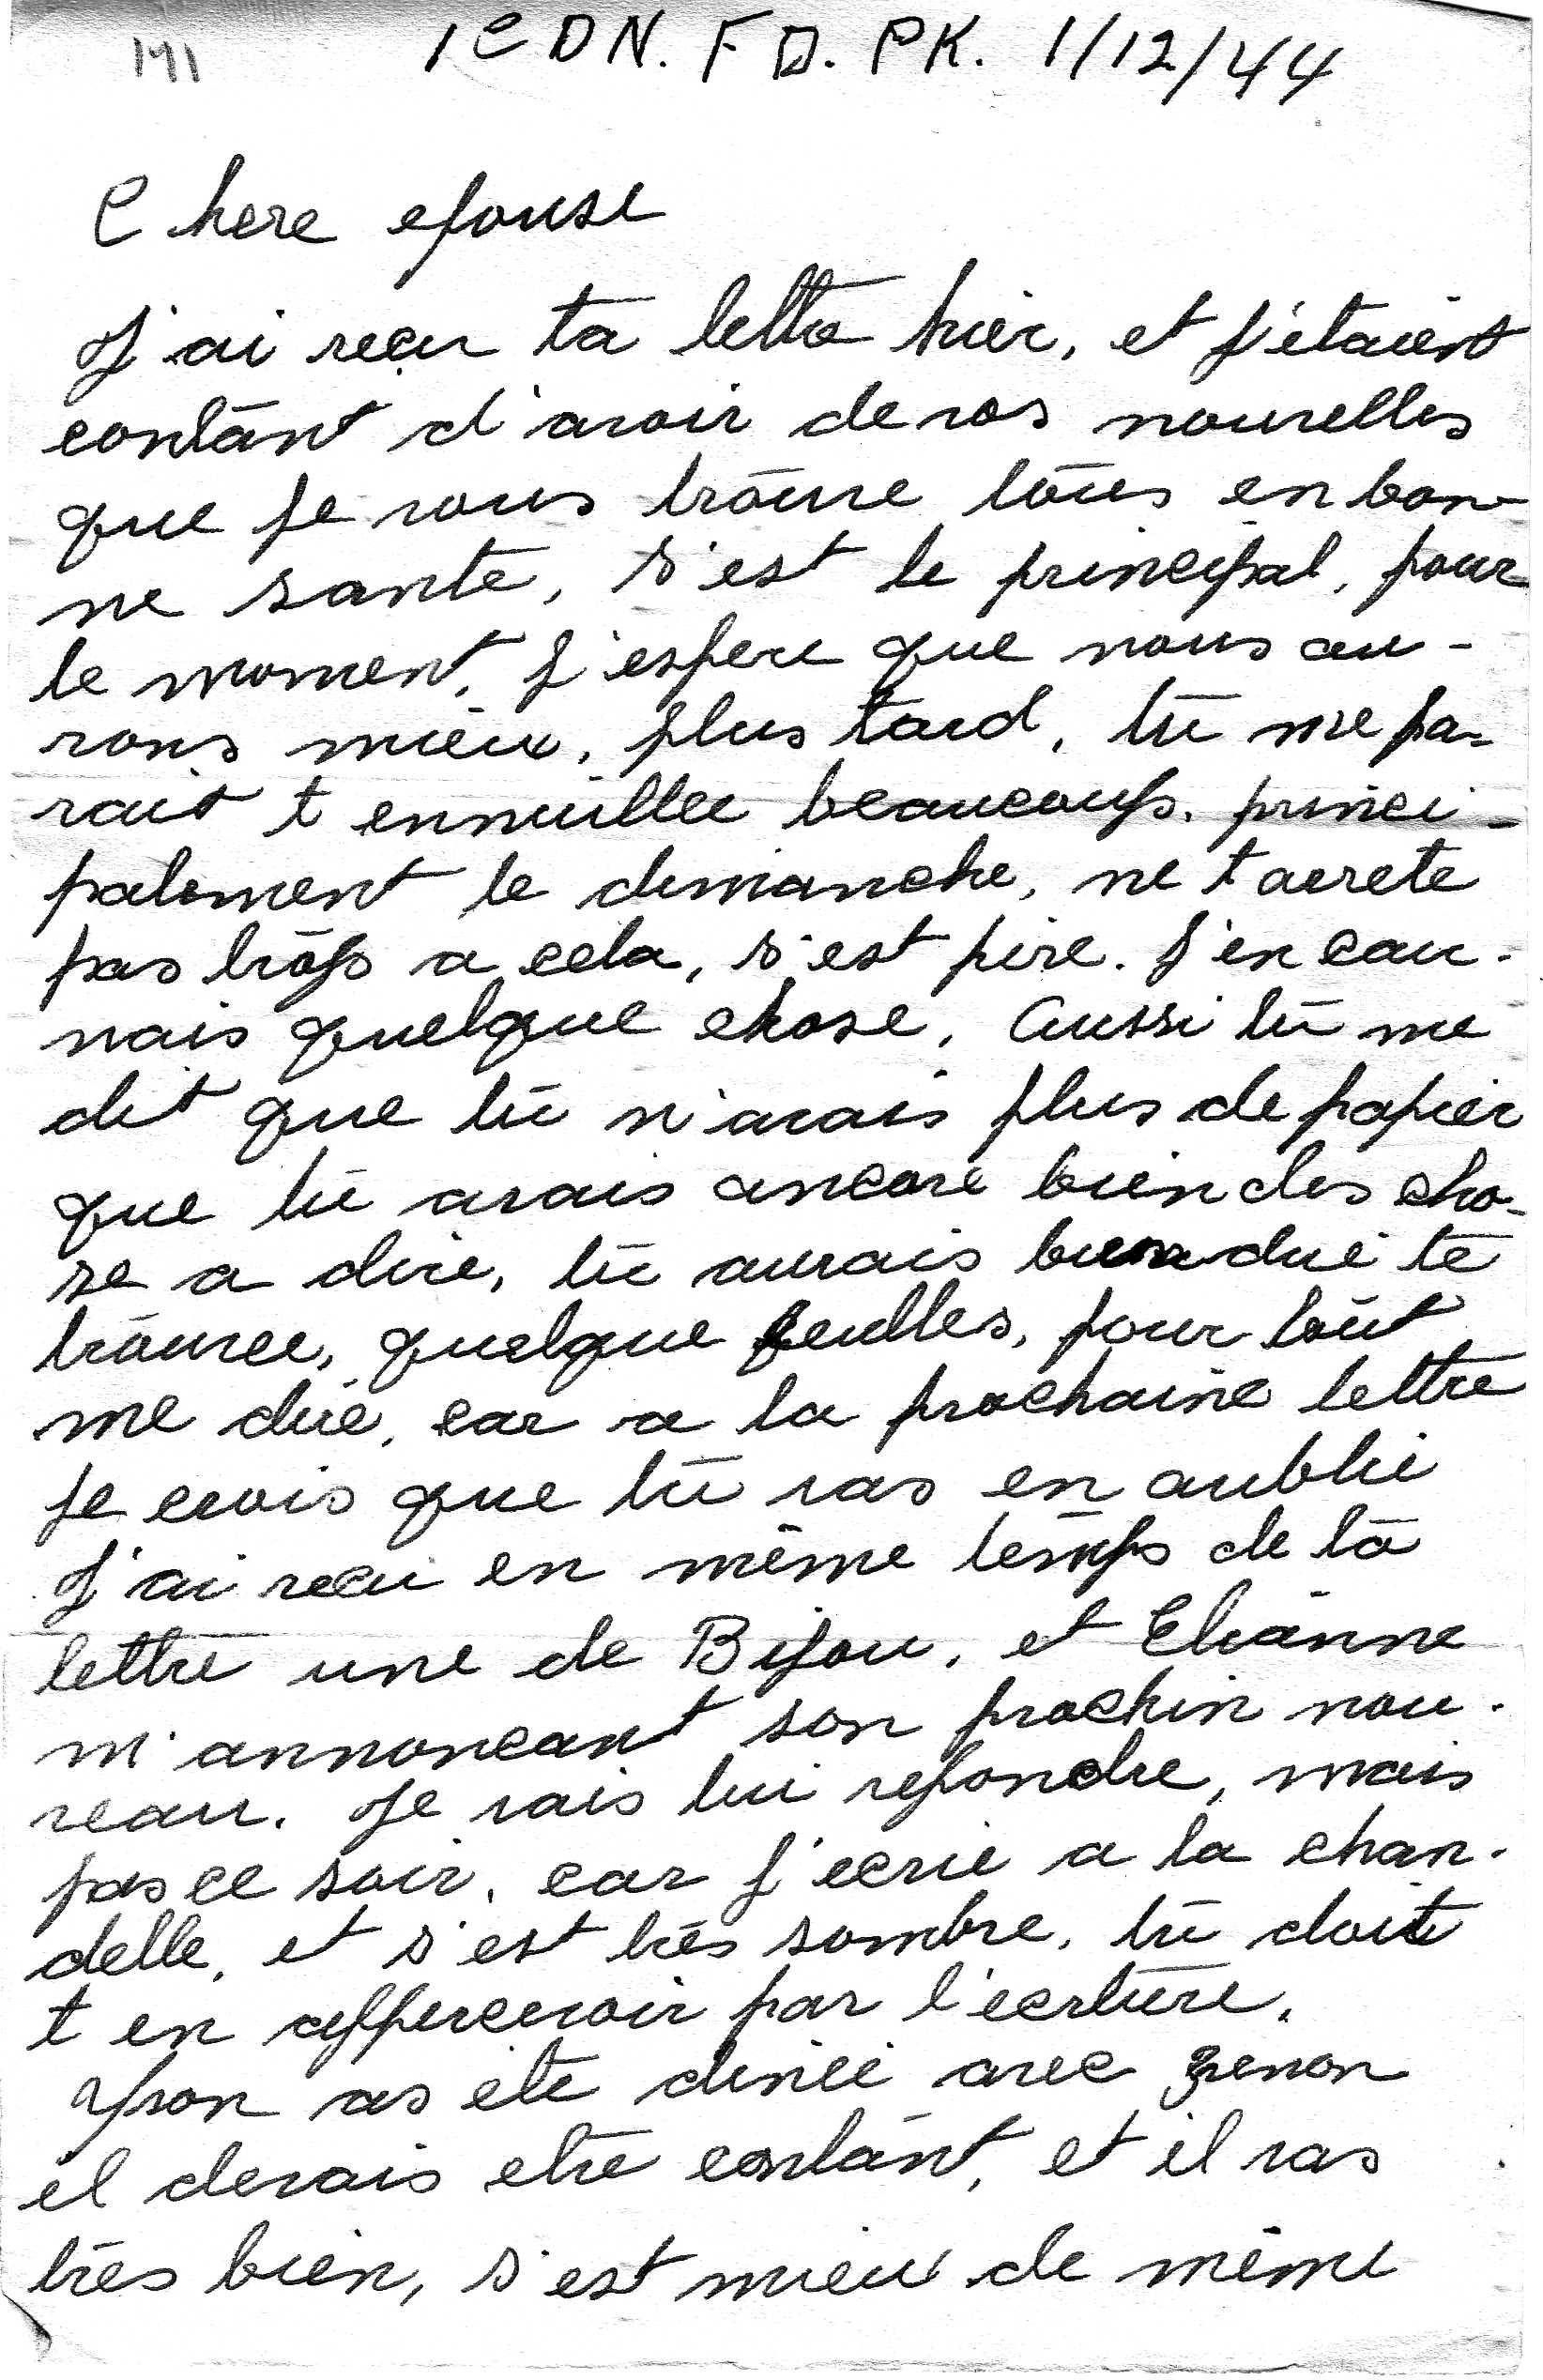 171 1 CDN. FD. PK. 1/12/44
Chere epouse
J'ai reçu ta lettre hier, et j'étaient
contant d'avoir de vos nouvelles
que je vous trouve tous en bon-
ne sante, s'est le principal, pour
le moment, j'espere que nous au-
rons mieux, plus tard, tu me pa-
rait t ennuillee beaucoup, princi-
palement le dimanche, ne t'arrete
pas trop a cela, s'est pire. J'en cau-
nais quelque chose, Aussi tu me
dit que tu n'avais plus de papier
que tu avais ancore bien des cho-
se a dire, tu aurais bien due te
trouvee, quelque feulles, pour tout
me dire, car a la prochaine lettre
je crois que tu vas en aublie
J'ai reçu en même temps de ta
lettre une de Bijou, et Elianne
m'annonçant son prochin nou-
veau. Je vais lui repondre, mais
pas ce soir, car j'ecrie a la chan-
delle, et s'est très sombre, tu doit
t en appercevoir par l'ecrture.
Yvon as ete dinée avec Zenon
il devais etre contant, et il vas
très bien, s'est mieux de même